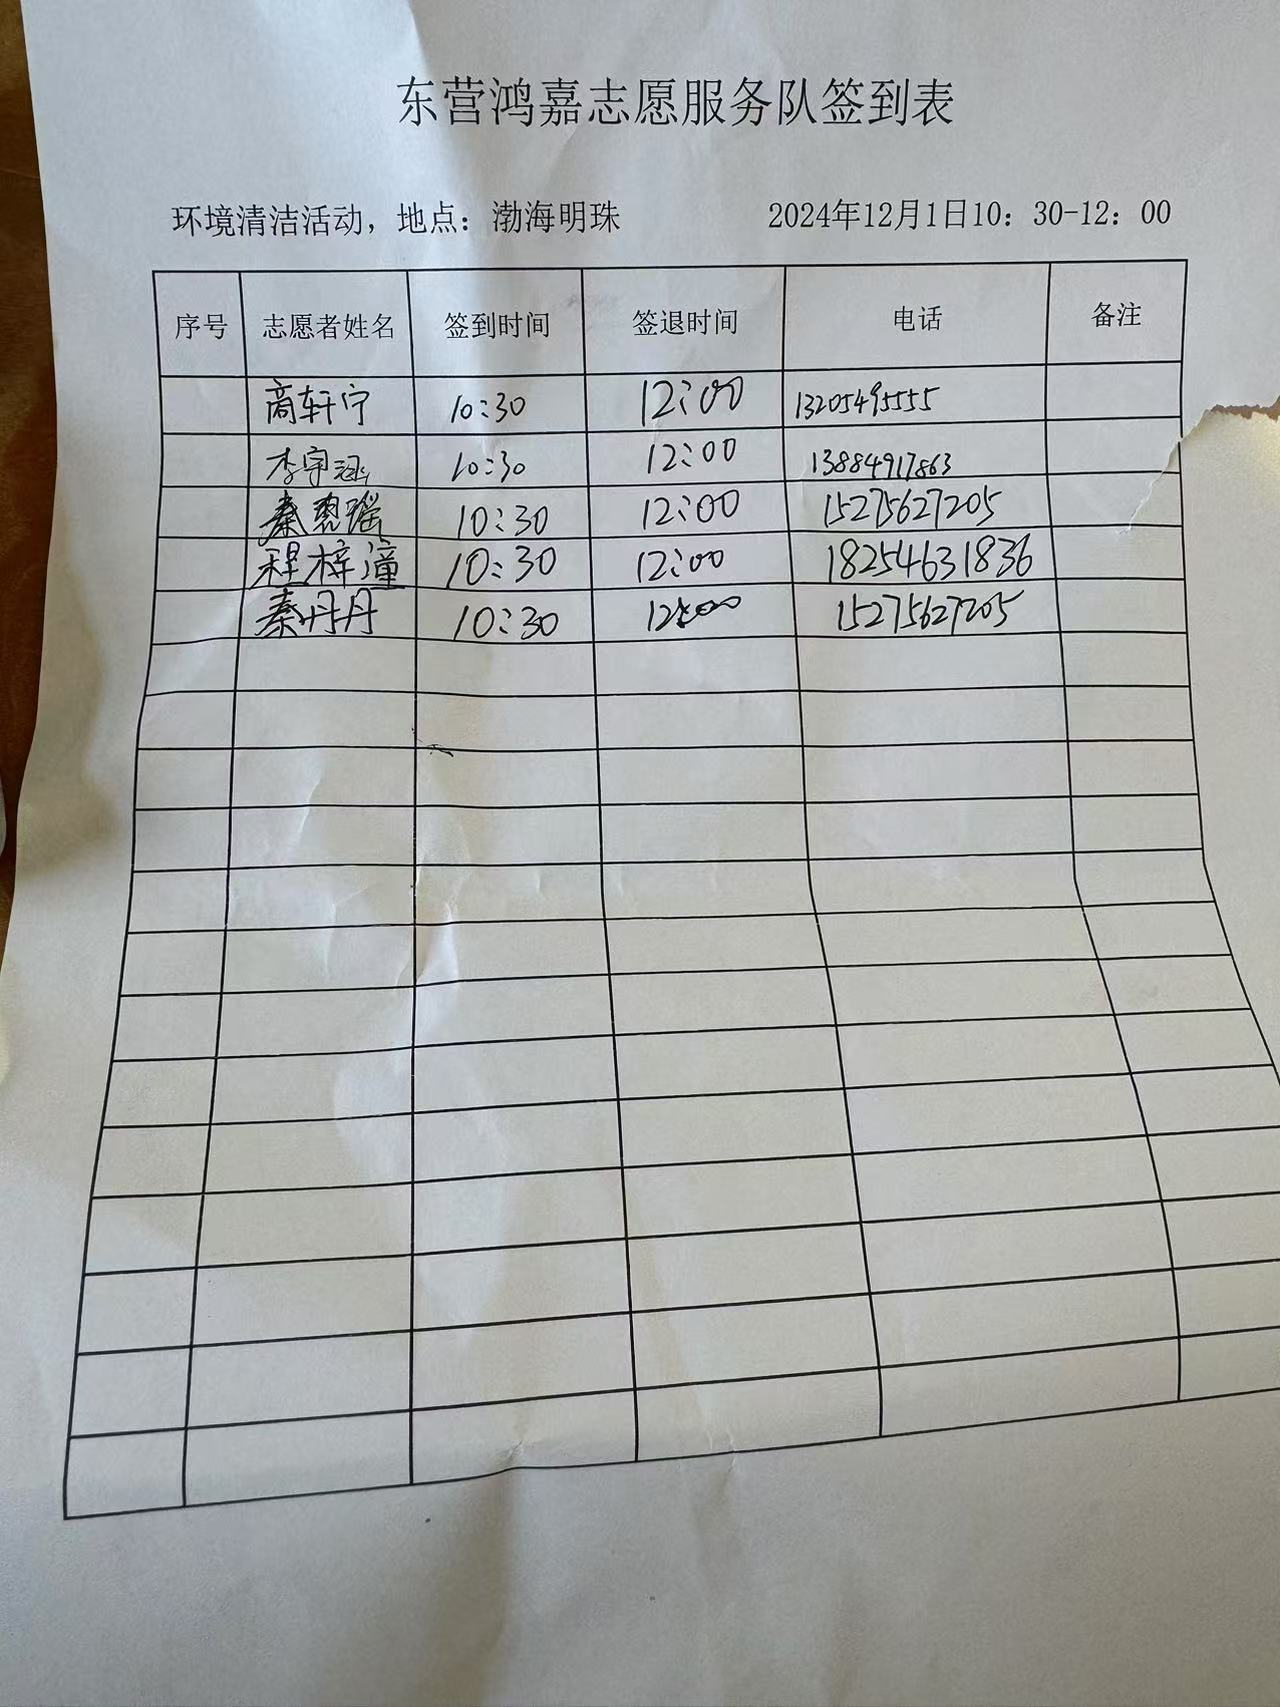 东营鸿嘉志愿服务队签到表
环境清洁活动，地点：渤海明珠 2024年12月1日10：30-12：00
序号 志愿者姓名 签到时间 签退时间 电话 备注
商轩宁 10:30 12:00 13205495555
李宇涵 10:30 12:00 13884917863
秦 瑶 10:30 12:00 15275627205
程梓潼 10:30 12:00 18254631836
秦丹丹 10:30 12:00 15275627205